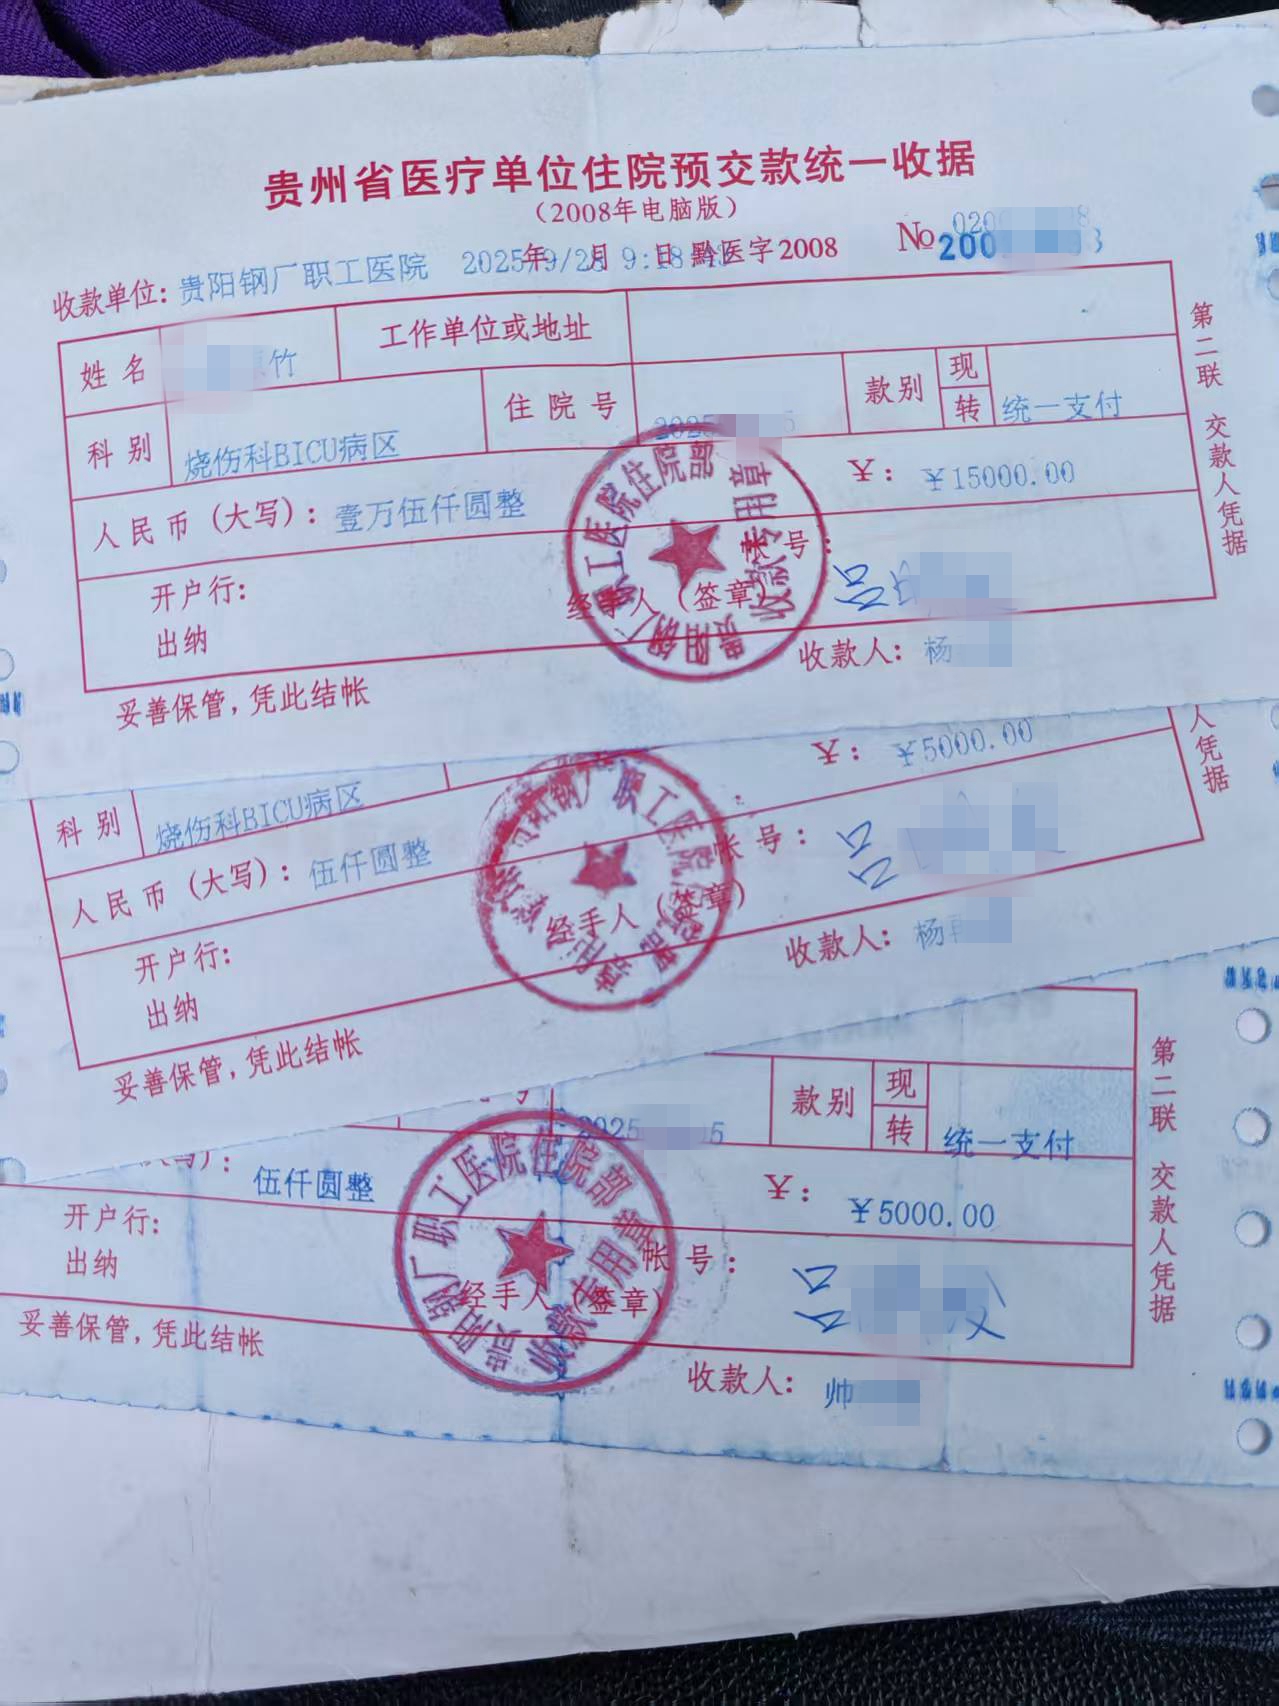 贵州省医疗单位住院预交款统一收据
（2008年电脑版）
收款单位：贵阳钢厂职工医院 2025年9/28 9:18 月 日 黔医字2008 No 200 3
姓名 竹 工作单位或地址
科别 烧伤科BICU病区 住院号 2025 5 款别 现 转 统一支付
人民币（大写）：壹万伍仟圆整 ¥： ¥15000.00
开户行： 帐号：
出纳 经手人（签章）
收款人：杨
妥善保管，凭此结帐
第二联 交款人凭据
贵阳钢厂职工医院住院部
收款专用章
¥： ¥5000.00
科别 烧伤科BICU病区
人民币（大写）：伍仟圆整
开户行： 帐号：
出纳 经手人（签章）
收款人：杨
妥善保管，凭此结帐
人凭据
钢厂职工医院
2025 5 款别 现 转 统一支付
伍仟圆整 ¥： ¥5000.00
开户行： 帐号：
出纳 经手人（签章）
收款人：帅
妥善保管，凭此结帐
第二联 交款人凭据
贵阳钢厂职工医院住院部
专用章